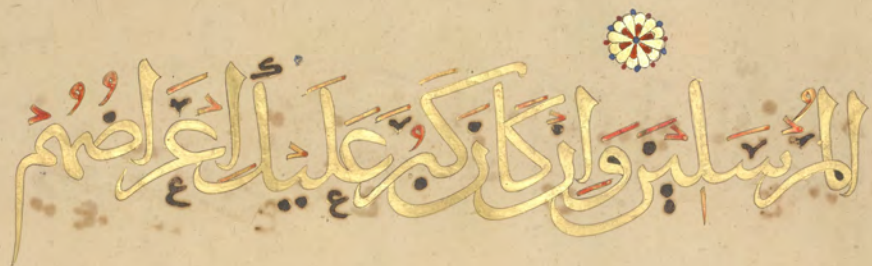 الْمُرْسَلِينَ وَإِن كَانَ كَبُرَ عَلَيْكَ إِعْرَاضُهُمْ